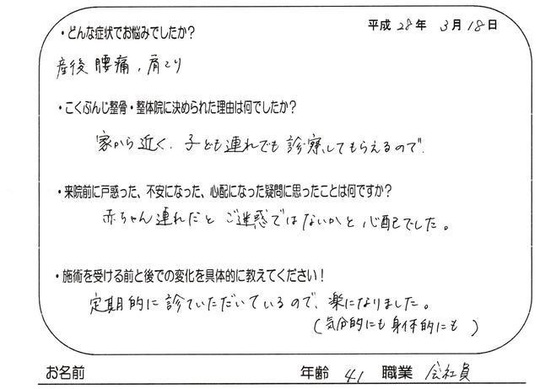 平成 28年 3月 18日
・どんな症状でお悩みでしたか?
産後 腰痛、肩こり
・こくぶんじ整骨・整体院に決められた理由は何でしたか?
家から近く、子ども連れでも診察してもらえるので。
・来院前に戸惑った、不安になった、心配になった疑問に思ったことは何ですか?
赤ちゃん連れだとご迷惑ではないかと心配でした。
・施術を受ける前と後での変化を具体的に教えてください!
定期的に診ていただいているので、楽になりました。
(気分的にも身体的にも)
お名前 年齢 41 職業 会社員